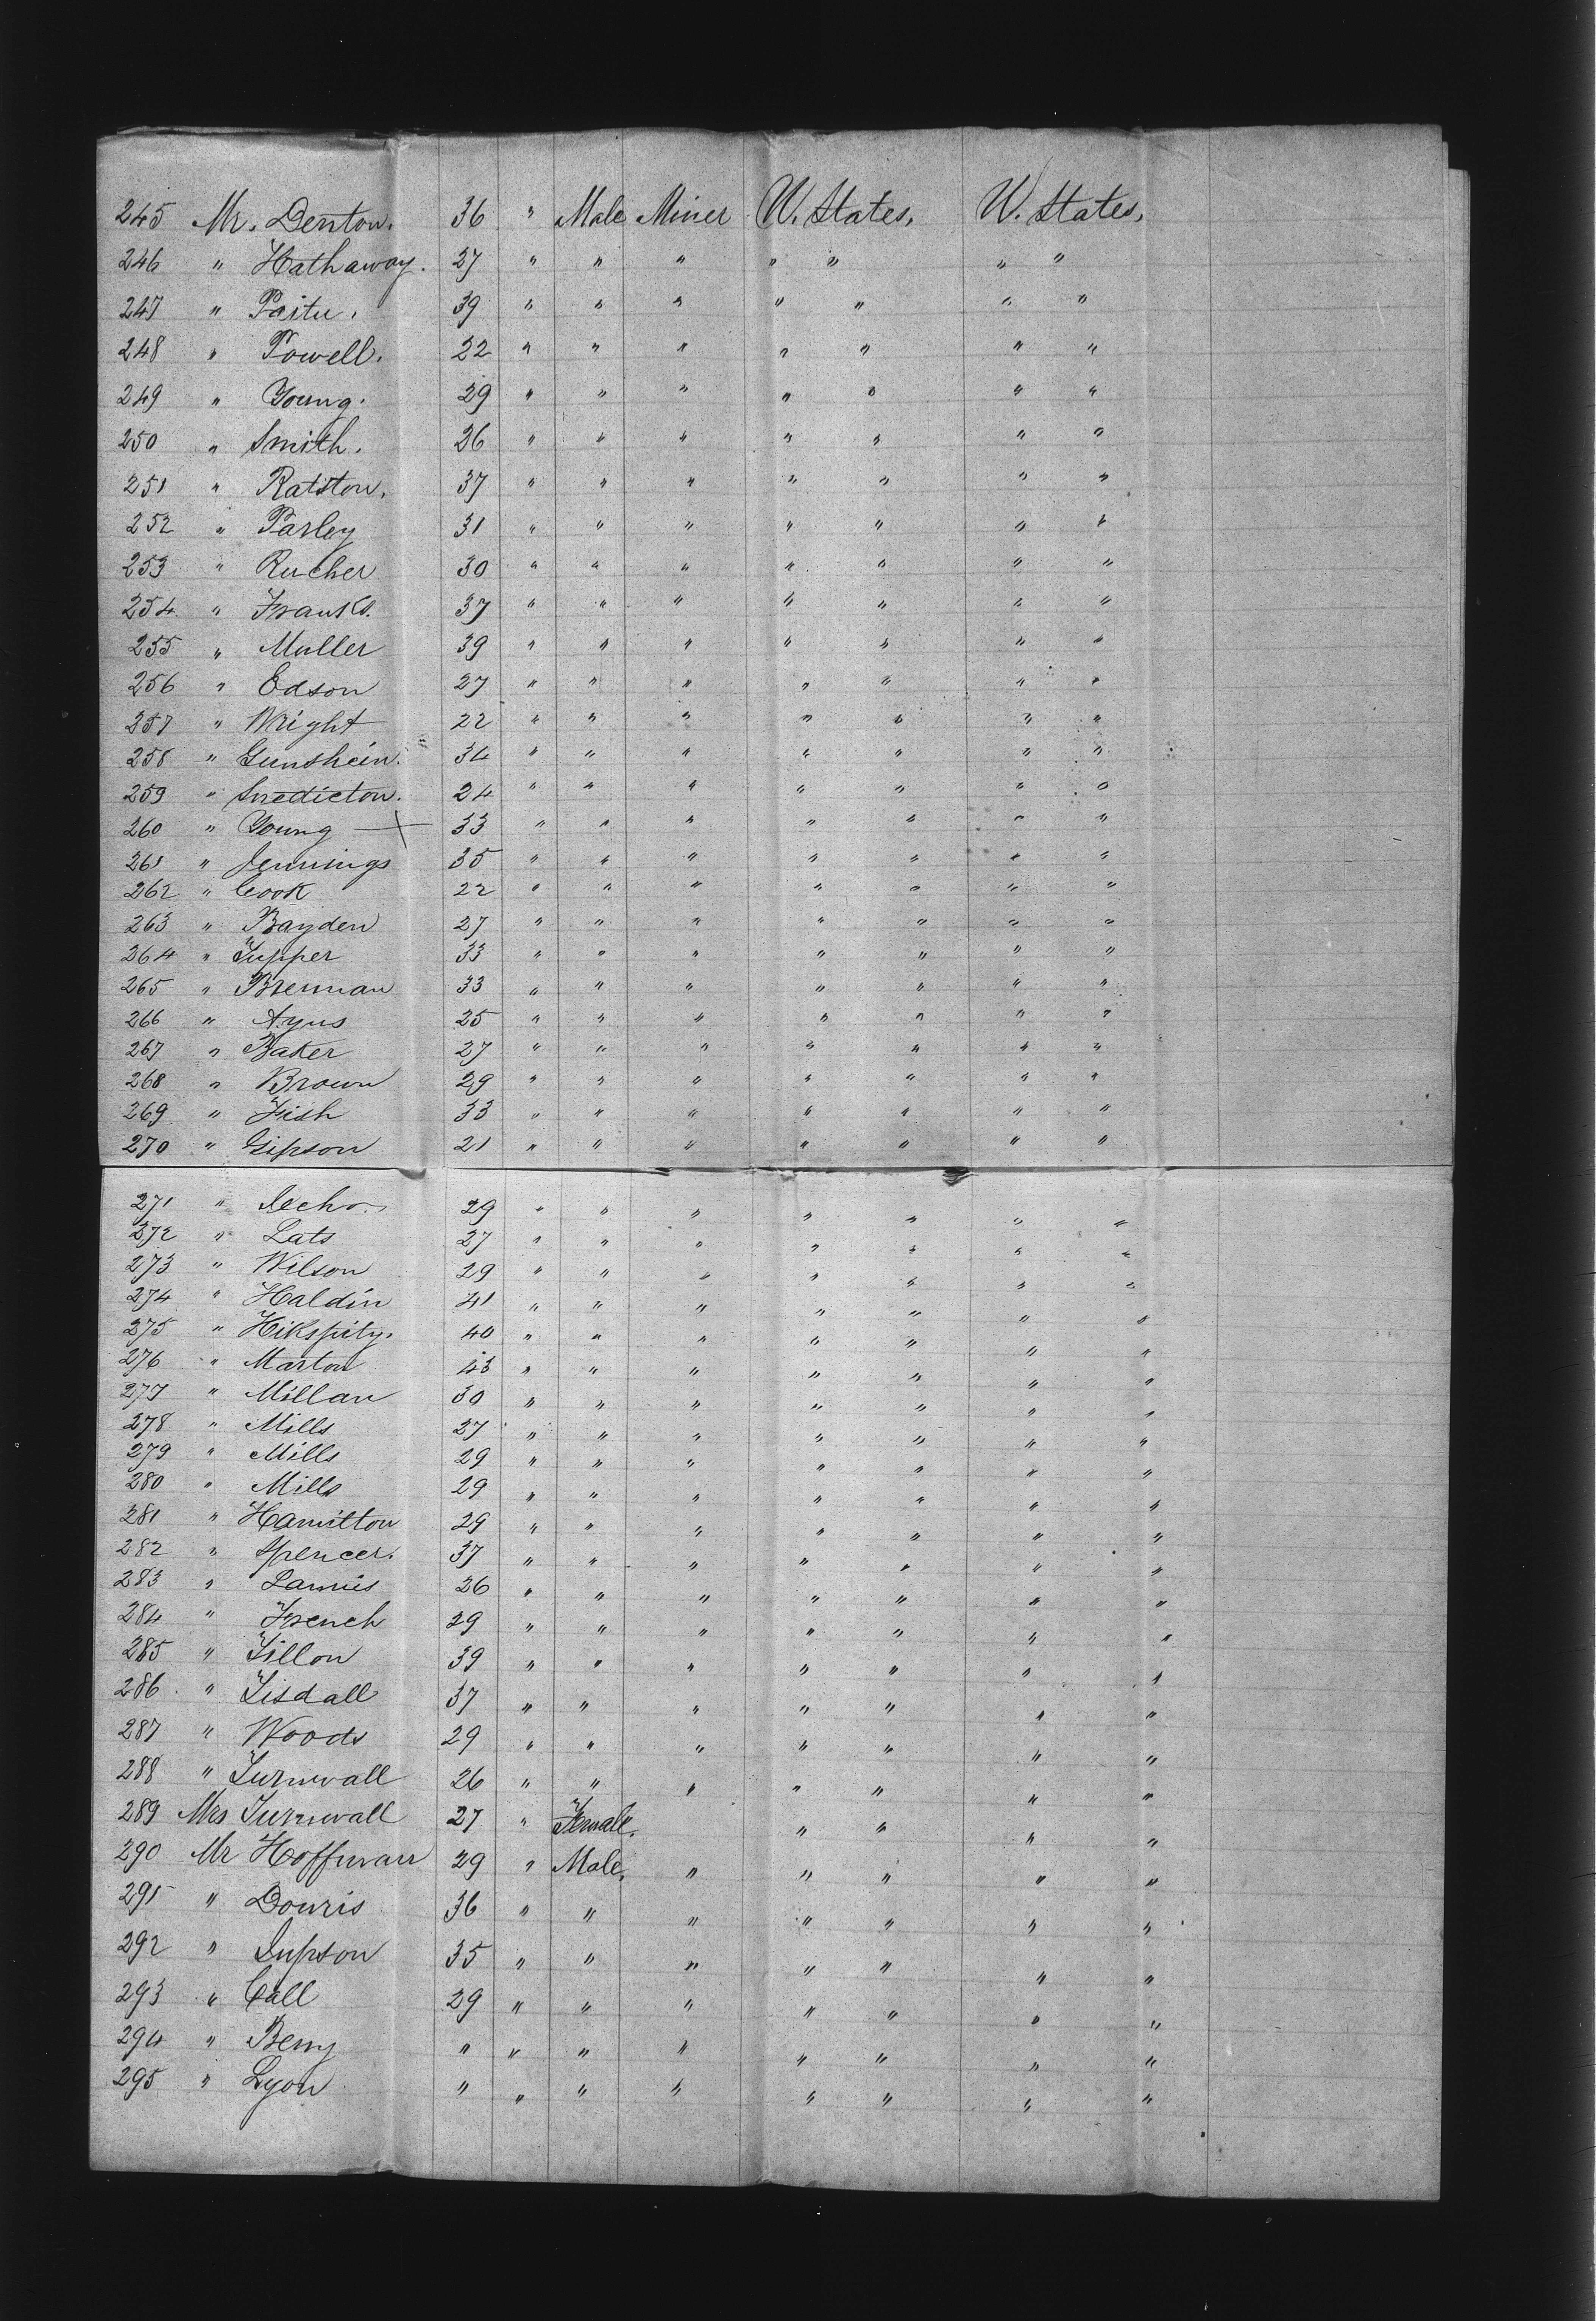 245 Mr. Denton. 36 " Male Miner U. States, U. States,
246 " Hathaway. 27 " " " " " " "
247 " Paitu. 39 " " " " " " "
248 " Powell. 22 " " " " " " "
249 " Young. 29 " " " " " " "
250 " Smith. 26 " " " " " " "
251 " Ralston. 37 " " " " " " "
252 " Parley 31 " " " " " " "
253 " Rucher 30 " " " " " " "
254 " 37 " " " " " " "
255 " Muller 39 " " " " " " "
256 " Edson 27 " " " " " " "
257 " Wright 22 " " " " " " "
258 " Gunshein. 34 " " " " " " "
259 " Snedicton. 24 " " " " " " "
260 " Young 33 " " " " " " "
261 " Jennings 35 " " " " " " "
262 " Cook 22 " " " " " " "
263 " Bayden 27 " " " " " " "
264 " Tupper 33 " " " " " " "
265 " Brennan 33 " " " " " " "
266 " Ayus 25 " " " " " " "
267 " Baker 27 " " " " " " "
268 " Brown 29 " " " " " " "
269 " Fish 33 " " " " " " "
270 " Gipson 21 " " " " " " "
271 " 29 " " " " " " "
272 " Lats 27 " " " " " " "
273 " Wilson 29 " " " " " " "
274 " Haldin 41 " " " " " " "
275 " 40 " " " " " " "
276 " Marton 43 " " " " " " "
277 " Millan 30 " " " " " " "
278 " Mills 27 " " " " " " "
279 " Mills 29 " " " " " " "
280 " Mills 29 " " " " " " "
281 " Hamilton 29 " " " " " " "
282 " Spencer. 37 " " " " " " "
283 " 26 " " " " " " "
284 " French 29 " " " " " " "
285 " Tillon 39 " " " " " " "
286 " Tisdall 37 " " " " " " "
287 " Woods 29 " " " " " " "
288 " Turnwall 26 " " " " " " "
289 Mrs Turnwall 27 " Female. " " " "
290 Mr Hoffman 29 " Male. " " " " "
291 " Douris 36 " " " " " " "
292 " Jupson 35 " " " " " " "
293 " Call 29 " " " " " " "
294 " Berry " " " " " " " "
295 " Lyon " " " " " " " "